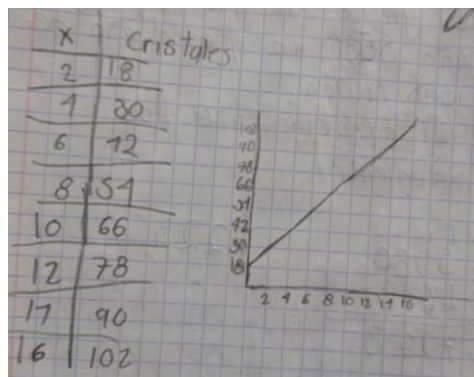 x cristales
2 18
4 30
6 42
8 54
10 66
12 78
14 90
16 102
102
90
78
66
54
42
30
18
2 4 6 8 10 12 14 16